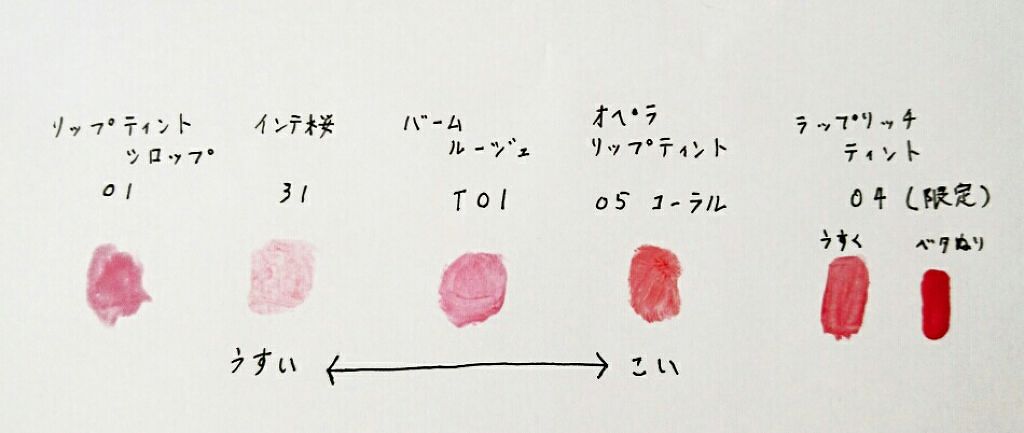 リップティント
シロップ
01
インテ桜
31
バーム
ルージュ
T01
オペラ
リップティント
05 コーラル
ラップリッチ
ティント
04 (限定)
うすく
ベタぬり
うすい
こい